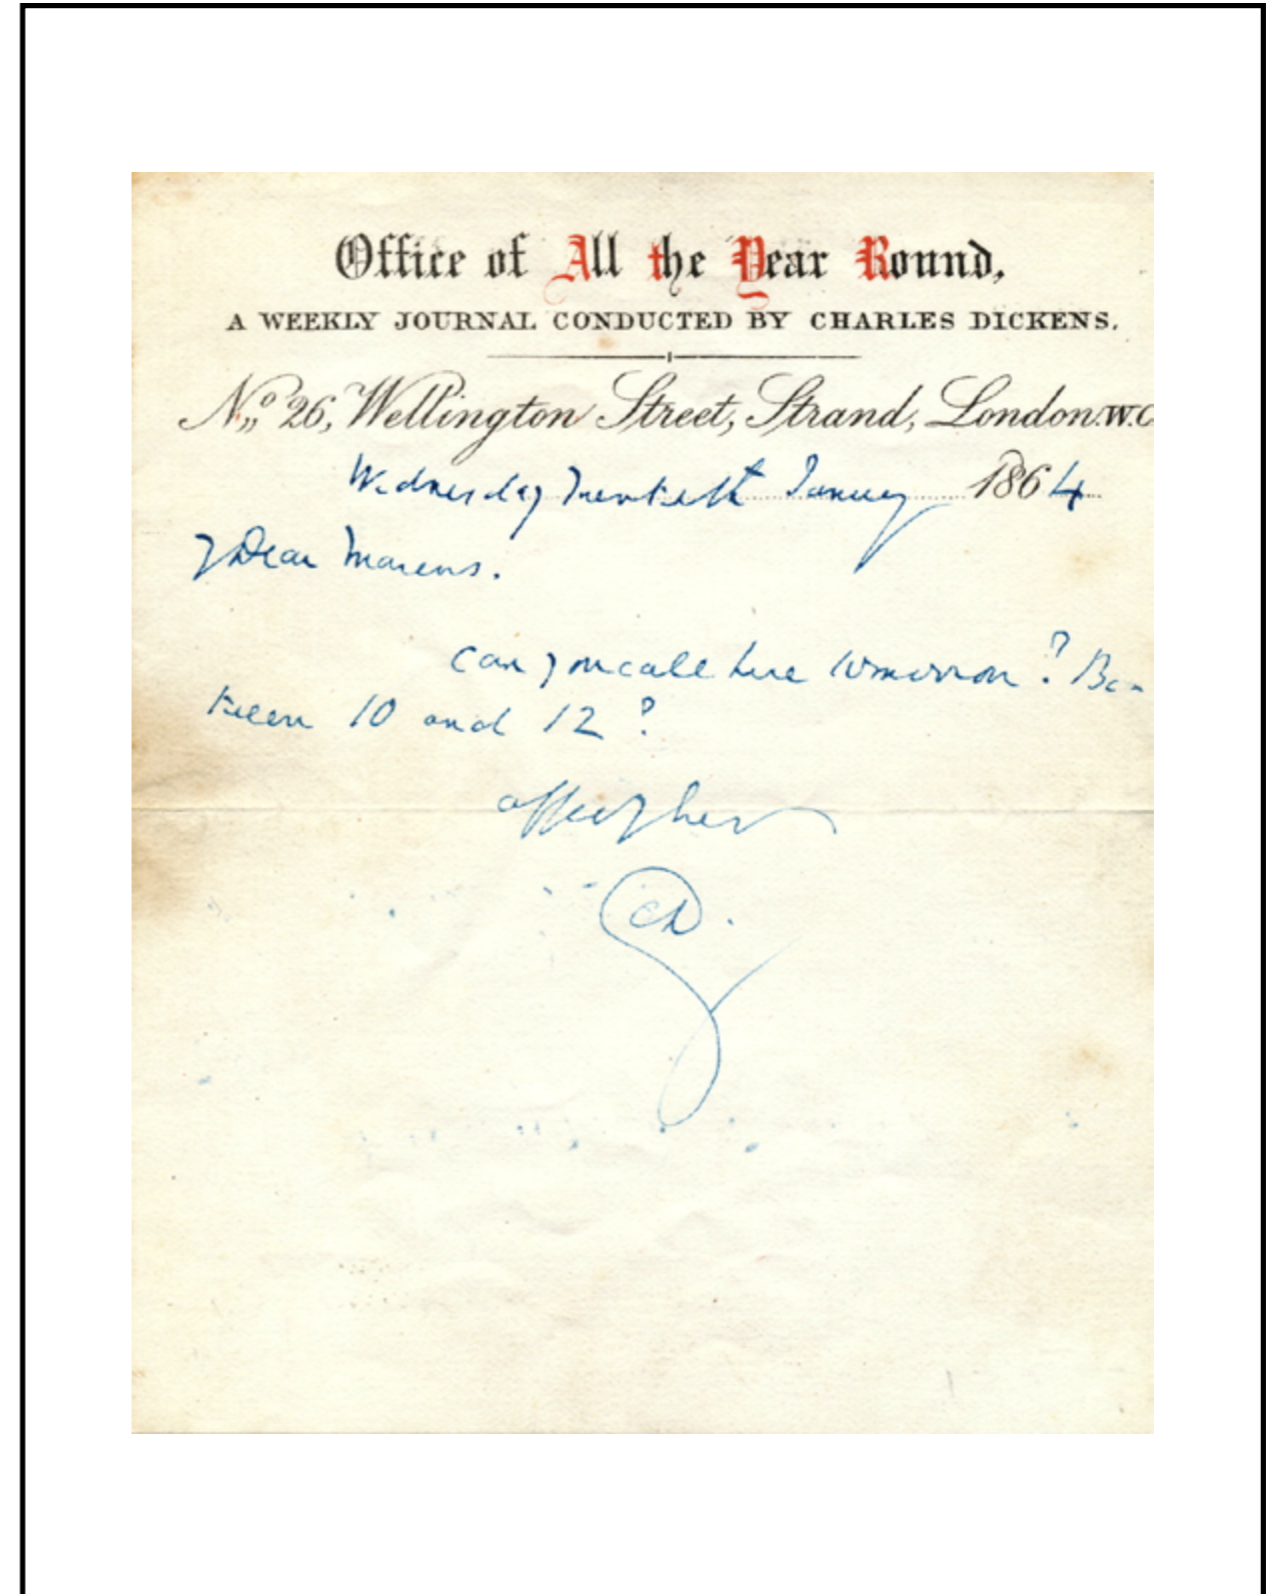 Office of All the Year Round,
A WEEKLY JOURNAL CONDUCTED BY CHARLES DICKENS.
No. 26, Wellington Street, Strand, London. W.C
Wednesday Twentieth January 1864
My Dear Marcus.
Can you call here tomorrow? Be-
tween 10 and 12?
CD.